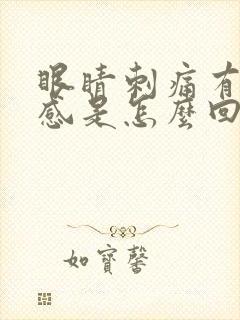 眼睛刺痛有
感是怎麼回
如寶馨